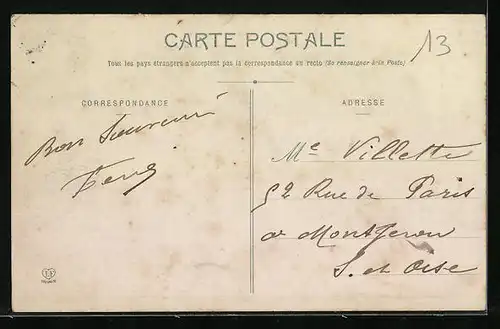 CARTE POSTALE
13
Tous les pays étrangers n'acceptent pas la correspondance au recto (Se renseigner à la Poste)
CORRESPONDANCE
ADRESSE
Bon Souvenir
Me Villette
52 Rue de Paris
a Montgeron
S. et Oise